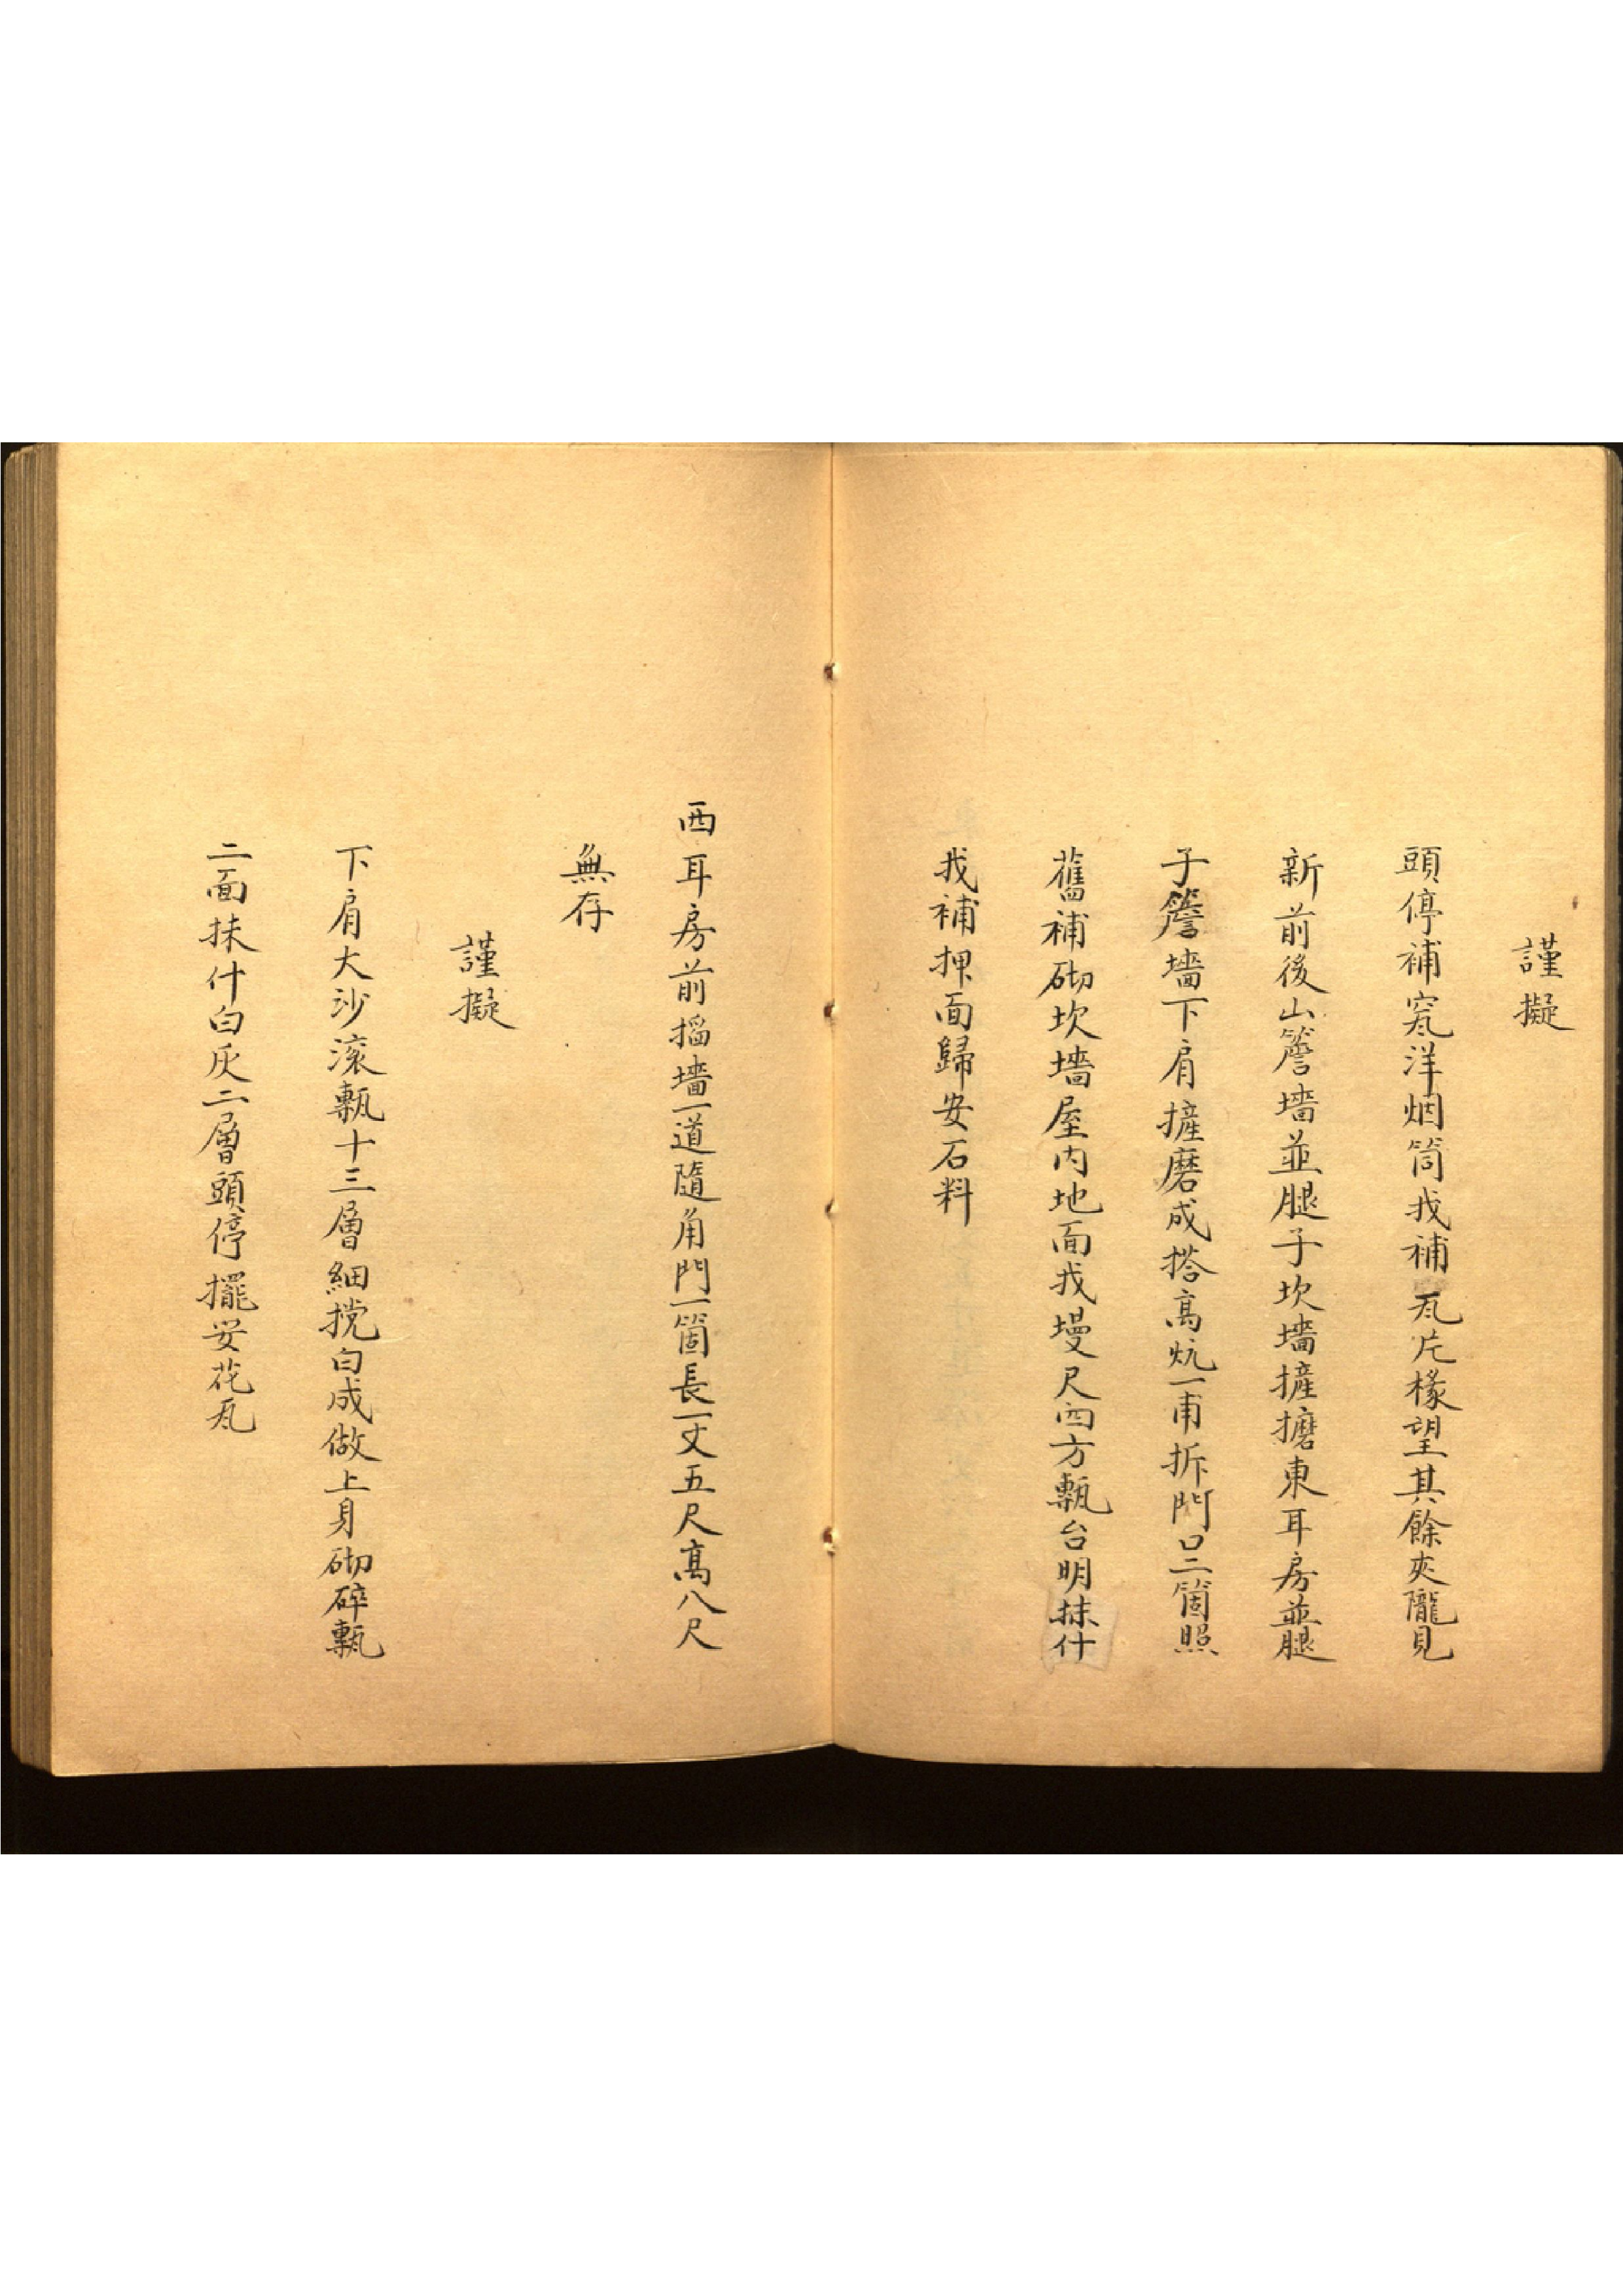 謹擬
頭停補窊洋烟筒找補瓦片椽望其餘夾隴見
新前後山簷墻並腿子坎墻摌擵東耳房並腿
子簷墻下肩摌磨成搭高炕一甫拆門口二箇照
舊補砌坎墻屋内地面找墁尺四方甎台明抹什
找補押面歸安石料
西耳房前搯墻一道隨角門一箇長一丈五尺高八尺
無存
謹擬
下肩大沙滚甎十三層細搅白成做上身砌碎甎
二面抹什白灰二層頭停擺安花瓦